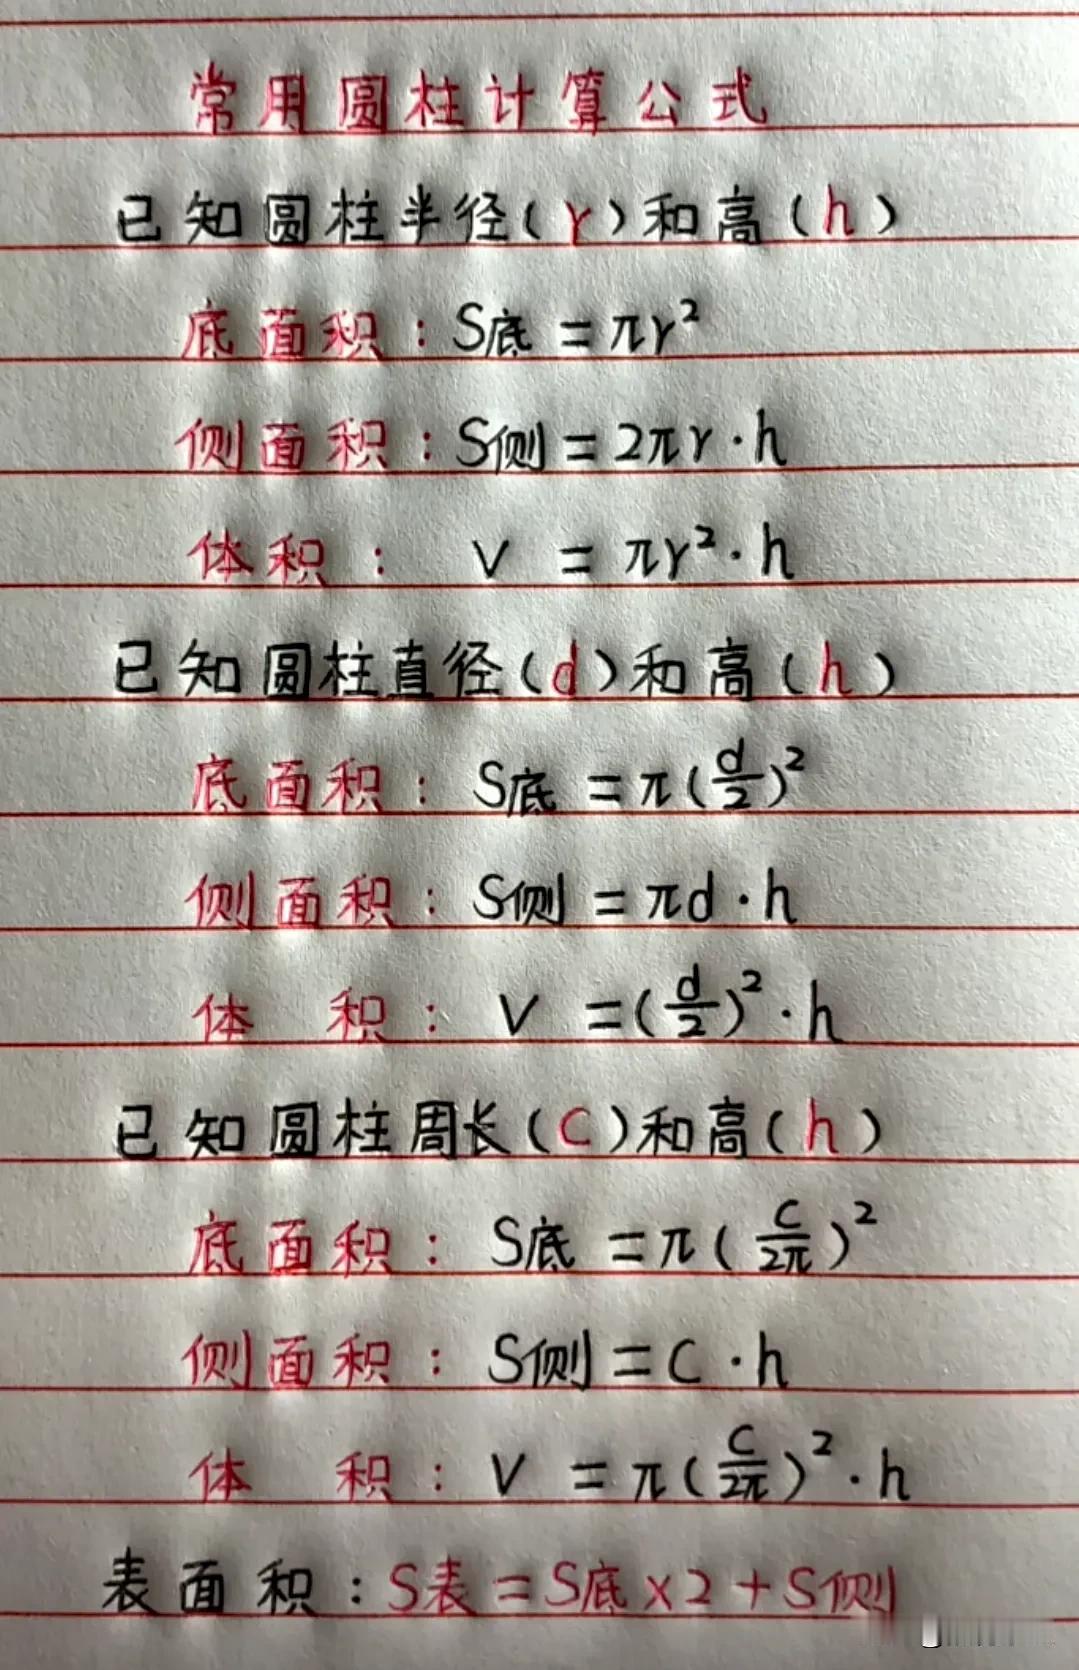 常用圆柱计算公式
已知圆柱半径(r)和高(h)
底面积:S底=πr²
侧面积:S侧=2πr·h
体积: V =πr²·h
已知圆柱直径(d)和高(h)
底面积: S底=π(d/2)²
侧面积: S侧=πd·h
体 积: V =(d/2)²·h
已知圆柱周长(C)和高(h)
底面积: S底=π(C/2π)²
侧面积: S侧=C·h
体 积: V =π(C/2π)²·h
表面积:S表=S底×2+S侧